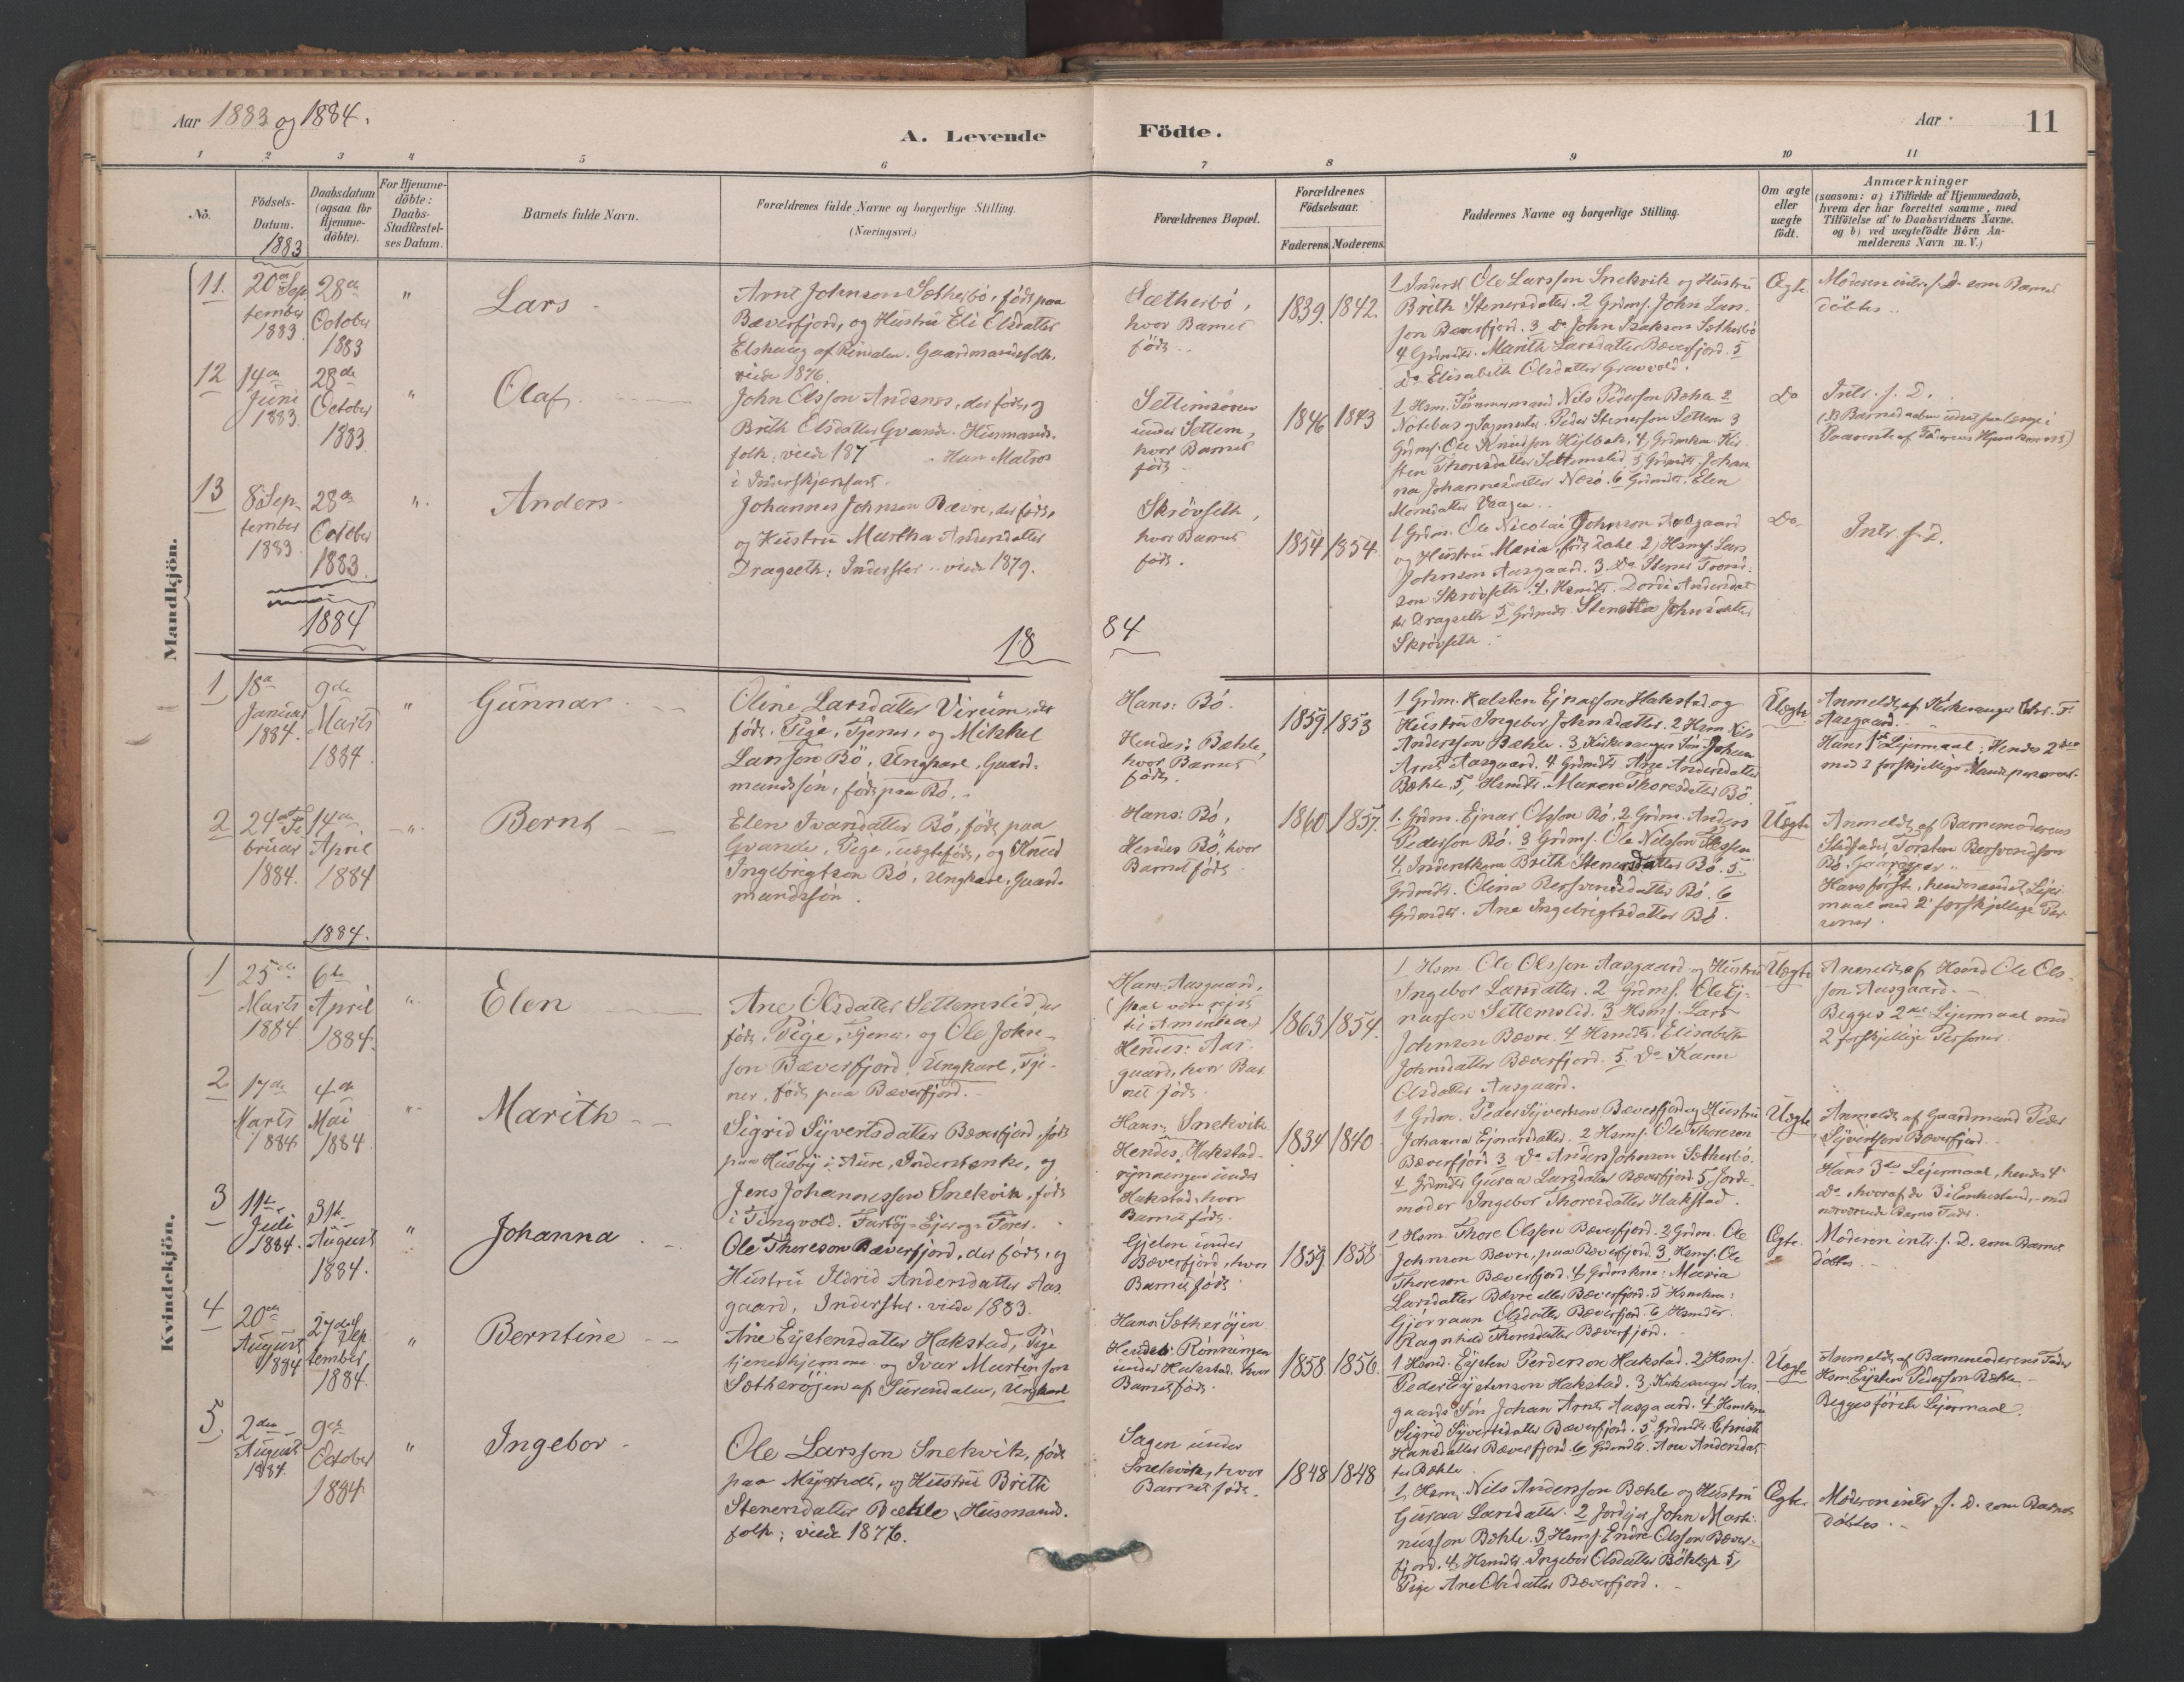 Aar 1883 og 1884.
A. Levende Födte.
Aar
11
1 2 3 4 5 6 7 8 9 10 11
No.
Födsels-
Datum.
1883
Daabsdatum
(ogsaa for
Hjemme-
döbte).
For Hjemme-
döbte:
Daabs-
Stadfæstel-
ses Datum.
Barnets fulde Navn.
Forældrenes fulde Navne og borgerlige Stilling.
(Næringsvei.)
Forældrenes Bopæl.
Forældrenes
Födselsaar.
Faderens. Moderens.
Faddernes Navne og borgerlige Stilling.
Om ægte
eller
uægte
födt.
Anmærkninger
(saasom: a) i Tilfælde af Hjemmedaab,
hvem der har forrettet samme, med
Tilföielse af to Daabsvidners Navne.
og b) ved uægtefödte Börn An-
melderens Navn m. V.)
Mandkjön.
11.
20de Sep
tember
1883.
28de
October
1883
"
Lars
Arnt Johnson Sætherbö, födt paa
Bæverfjord, og Hustru Eli Elsdatter
Elshaug af Rindalen. Gaardmandsfolk,
viede 1876.
Sætherbö,
hvor Barnet
födt.
1839. 1842.
1 Inderst Ole Larsson Snekvik og Hustru
Brith Stenersdatter. 2 Grdms. John Lars-
son Bæverfjord. 3 Do John Isakson Sætherbö
4 Grdmdtr. Marith Larsdatter Bæverfjord. 5
Do Elisabeth Olsdatter Gravvold.
Ægte
Moderen intr. f. D. som Barnet
döbtes.
12
14de
Juni
1883.
28de
October
1883
"
Olaf.
John Olsson Andsnes, der födt, og
Brith Elsdatter Gvande. Husmands-
folk; viede 187 . Han Matros
i
Settemsören
under Settem,
hvor Barnet
födt.
1846 1843
1 Hsm. Tömmermand Nils Pederson Bæhle 2
Notebas og Sagmester Peder Stenersson Settem 3
Grdms. Ole Knudson Höjlbak, 4, Grdmkone Kir-
sten Thoresdatter Settemslid, 5 Grdmdtr. Johan
na Johannesdatter Nesö. 6 Grdmdtr. Elen
Monsdatter
Do
Intr. f. D.
13
8de Sep-
tember
1883.
28de
October
1883.
"
Anders
Johannes Johnson Bævre, der födt,
og Hustru Martha Andersdatter
Dragseth; Inderster .. viede 1879.
Skrövseth,
hvor Barnet
födt.
1854 1854
1 Grdm. Ole Nicolai Johnson Aasgaard
og Hustru Maria, födt Dahl. 2) Hsmf. Lars
Johnson Aasgaard. 3. Do Stener Trond-
son Skrövseth. 4, Hsmdtr. Dordi Andersdat-
ter Dragseth 5 Grdmdtr. Stenetta Johnsdatter
Skrövseth.
Do
Intr. f. D.
1884
18 84
1
18de
Januar
1884.
9de
Marts
1884
"
Gunnar
Oline Larsdatter Virum, der
födt. Pige, Tjener, og Mikkel
Larsson Bö, Ungkarl, Gaard-
mandssön, födt paa Bö.
Hans: Bö.
Hendes: Bæhle,
hvor Barnet
födt.
1859 1853
1 Grdm. Halsten Ejnarsson Hakstad og
Hustru Ingebor Johnsdatter. 2 Hsm Nils
Andersson Bæhle. 3, Kirkesanger Sön Johan
Arnt Aasgaard. 4 Grdmdtr. Ane Andersdatter
Bæhle. 5, Hsmdtr. Maren Thoresdatter Bö
Uægte
Anmeldt af Kirkesanger Chr. F.
Aasgaard.
Hans 1ste Lejermaal; Hendes 2det
med 2 forskjellige Mandspersoner.
2
24de Fe
bruar
1884.
14de
April
1884
"
Bernt
Elen Ivarsdatter Bö, födt paa
Gvande, Pige, uægteföds, og Knud
Ingebrigtson Bö, Ungkarl, Gaard-
mandssön.
Hans: Bö,
Hendes Bö, hvor
Barnet födt
1860 1857.
1. Grdm. Ejnar Olsson Bö, 2, Grdm. Anders
Pederson Bö. 3 Grdms. Ole Nilsson
4. Inderstkone Brith Stenersdatter Bö. 5.
Grdmdtr. Olina Bersvendsdatter Bö. 6
Grdmdtr. Ane Ingebrigtsdatter Bö.
Uægte
Anmeldt af Barnemoderens
Stedfader, Torsten Bersvendson
Bö.
Hans förste, hendes andet Lejer-
maal med 2 forskjellige Per-
soner.
1884.
Kvindekjön.
1
25de
Marts
1884
6te
April
1884.
"
Elen
Ane Olsdatter Settemslid, der
födt. Pige, Tjener, og Ole John-
son Bæverfjord, Ungkarl, Tje-
ner, födt paa Bæverfjord.
Hans: Aasgaard,
(skal være rejst
til Amerika)
Hendes: Aas-
gaard, hvor Bar-
net födt.
1863 1854.
1 Hsm. Ole Olsson Aasgaard og Hustru
Ingebor Larsdatter. 2 Grdms. Ole Ej-
narsson Settemslid. 3 Hsms. Lars
Johnson Bævre. 4 Hsmdtr. Elisabeth
Johnsdatter Bæverfjord. 5. Do Karen
Olsdatter Aasgaard.
Uægte
Anmeldt af Hsmd Ole Ols-
son Aasgaard.
Begges 2det Lejermaal med
2 forskjellige Personer
2
17de
Marts
1884
4de
Mai
1884.
"
Marith
Sigrid Sÿvertsdatter Bæverfjord, födt
paa Husbÿ i Aure, Inderstenke, og
Jens Johannesson Snekvik, födt
i Tingvold.
Hans: Snekvik
Hendes: Hakstad-
rÿnningen under
Hakstad, hvor
Barnet födt.
1834 1840
1 Grdm. Peder Sÿvertson Bæverfjord og Hustru
Johanna Ejnarsdatter. 2 Hsms. Ole Thoreson
Bæverfjord 3 Do Anders Johnson Sætherbö.
4 Grdmdtr Guraa Larsdatter Bæverfjord. 5 Jorde-
moder Ingebor Thoresdatter Hakstad.
Uægte
Anmeldt af Gaardmand Peder
Sÿvertson Bæverfjord.
Hans 3de Lejermaal, hendes 4de
Do, hvoraf de 3 i Enkestand, med
nærværende Barns Fader.
3
11te
Juli
1884.
31te
August
1884.
"
Johanna
Ole Thoreson Bæverfjord, der födt, og
Hustru Ildrid Andersdatter Aas-
gaard, Inderster. viede 1883.
Gjelen under
Bæverfjord, hvor
Barnet födt.
1859 1858
1 Hsm. Thore Olsson Bæverfjord. 2 Grdm. Ole
Johnson Bævre, paa Bæverfjord. 3 Hsms. Ole
Thoreson Bæverfjord. 4 Grdmkone: Maria
Larsdatter Bævre eller Bæverfjord. 5 Hsmkone:
Gjörraan Olsdatter Bæverfjord. 6 Hsmdtr.
Ragnhild Thoresdatter Bæverfjord.
Ægte.
Moderen intr. f. D. som Barnet
döbtes.
4
20de
August
1884
27de Sep
tember
1884.
"
Berntine
Ane Eÿstensdatter Hakstad, Pige
tjener hjemme og Ivar Martinson
Sætheröjen af Surendalen, Ungkarl
Hans Sætheröjen
Hendes: Rönningen
under Hakstad, hvor
Barnet födt.
1858 1856.
1 Hsmd. Eÿsten Pederson Hakstad. 2 Hsms.
Peder Eÿstenson Hakstad. 3, Kirkesanger Aas-
gaards Sön Johan Arnt Aasgaard. 4 Hsmkone
Sigrid Sÿvertsdatter Bæverfjord. 5 Grdmdtr. Christi
Hansdatter Bæverfjord. 6 Grdmdtr. Ane Andersdat-
ter Bæhle.
Uægte
Anmeldt af Barnemoderens Fader
Hsm Eÿsten Pederson Bæhle.
Begges förste Lejermaal.
5.
2den
August
1884.
9de
October
1884
"
Ingebor
Ole Larsson Snekvik, födt
paa , og Hustru Brith
Stenersdatter Bæhle, Husmands-
folk; viede 1876.
Sagen under
Snekvik, hvor
Barnet födt.
1848 1848
1, Hsm. Nils Andersson Bæhle og Hustru
Guraa Larsdatter. 2 Jordejer John Marti-
nusson Bæhle. 3 Hsms. Endre Olsson Bæver-
fjord. 4, Hsmdtr. Ingebor Olsdatter 5,
Pige Ane Olsdatter Bæverfjord.
Ægte
Moderen intr. f. D. som Barnet
döbtes.